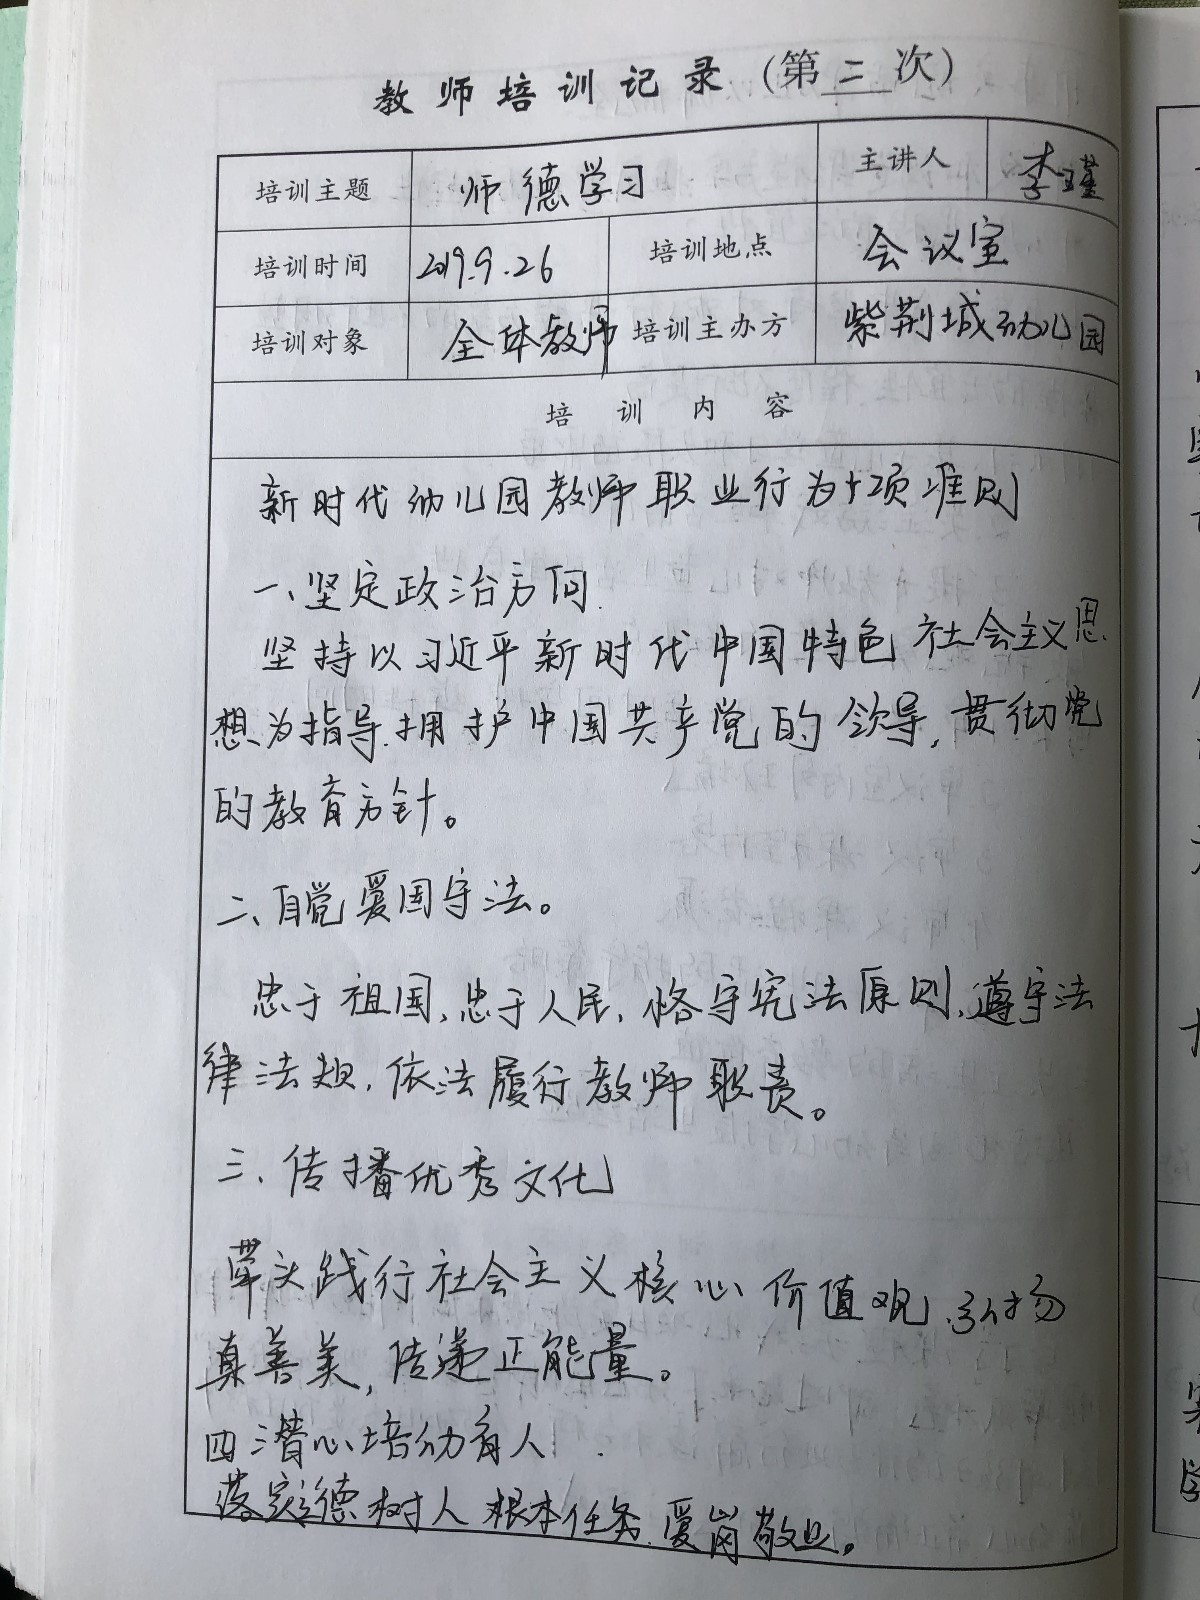 教师培训记录(第二次)
培训主题 师德学习 主讲人 李瑾
培训时间 2019.9.26 培训地点 会议室
培训对象 全体教师 培训主办方 紫荆城幼儿园
培训内容
新时代幼儿园教师职业行为十项准则
一、坚定政治方向.
坚持以习近平新时代中国特色社会主义思
想为指导.拥护中国共产党的领导,贯彻党
的教育方针。
二、自觉爱国守法。
忠于祖国,忠于人民,恪守宪法原则,遵守法
律法规,依法履行教师职责。
三、传播优秀文化
带头践行社会主义核心价值观.弘扬
真善美,传递正能量。
四潜心培幼育人.
落实立德树人根本任务.爱岗敬业。